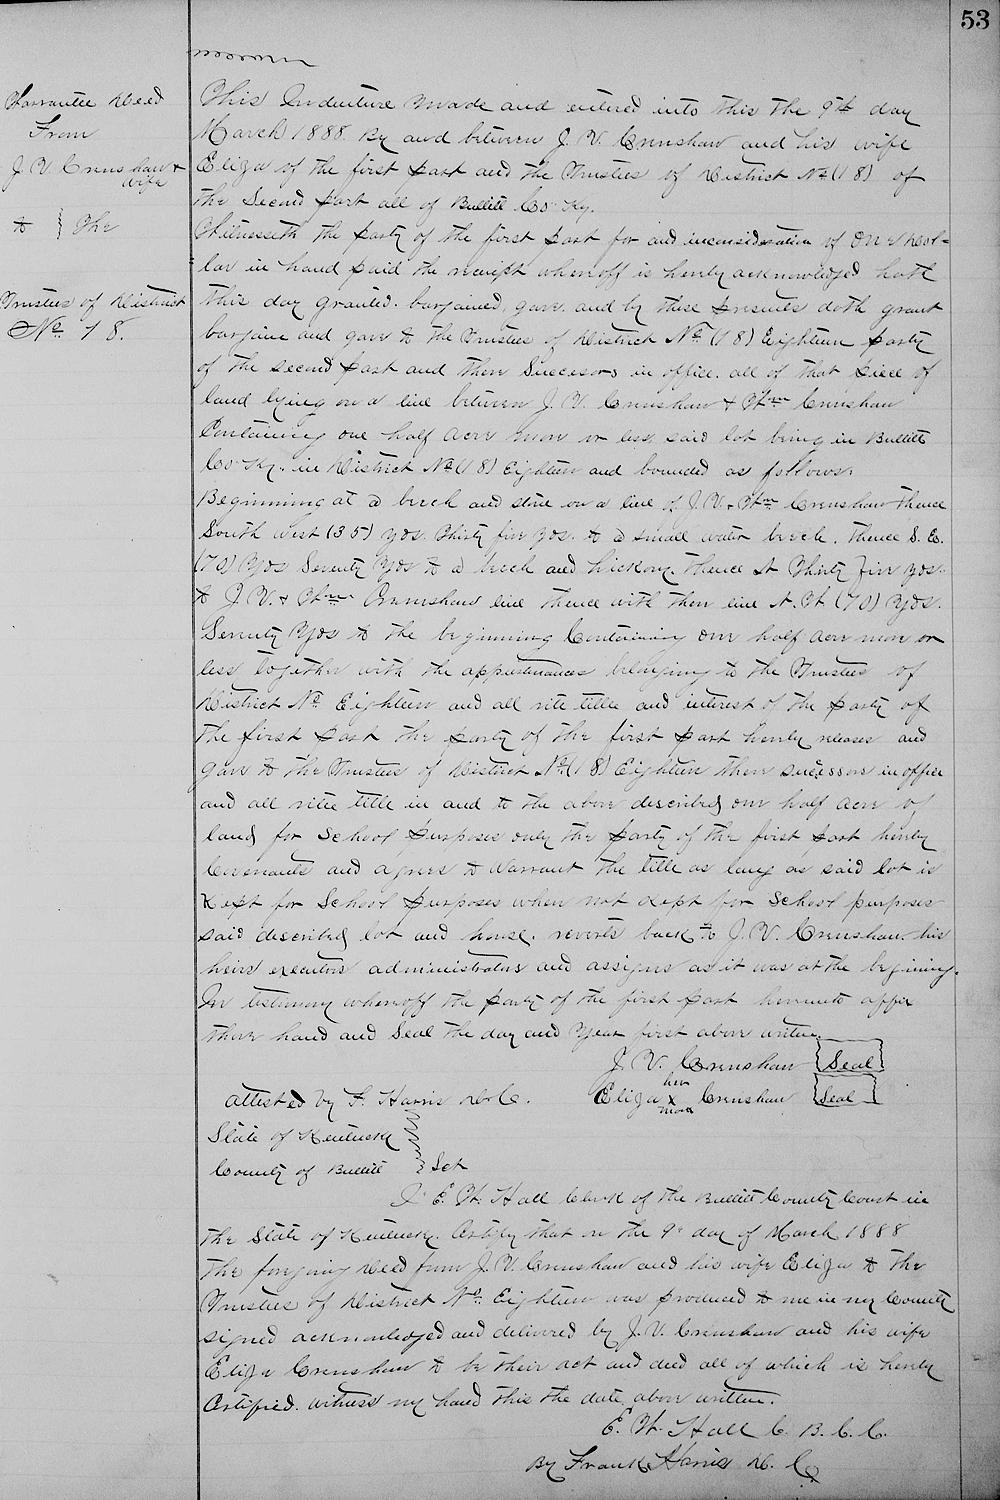 53
Warrantee Deed
From
J. V. Crenshaw &
wife
to } The
Trustees of District
No. 18.
This Indenture made and entered into this the 9th day
March 1888. By and between J. V. Crenshaw and his wife
Eliza of the first part and the Trustees of District No (18) of
the Second part all of Bullitt Co Ky.
Witnesseth the party of the first part for and inconsideration of One Dol-
lar in hand paid the receipt whereoff is hereby acknowledged hath
this day granted. bargained, gave. and by these presents doth grant
bargain and gave to the Trustees of District No (18) Eighteen party
of the second part and their Successors in office. all of that piece of
land lying on a line between J. V. Crenshaw & Wm Crenshaw
Containing one half Acre more or less, said lot being in Bullitt
Co Ky. in District No (18) Eighteen and bounded as follows.
Beginning at a beech and stone on a line of J. V. & Wm Crenshaw thence
South West (35) yds. Thirty five yds. to a small water beech. Thence S. E.
(70) Yds Seventy Yds to a beech and hickory. Thence N Thirty Five yds.
to J. V. & Wm Crenshaw line thence with their line N. W (70) Yds.
Seventy Yds to the beginning Containing one half Acre more or
less together with the appurtenances belonging to the Trustees of
District No Eighteen and all rite title and interest of the party of
the first part the party of the first part hereby releases and
gave to the Trustees of District No (18) Eighteen their successors in office
and all rite title in and to the above described one half Acre of
land for School purposes only the party of the first part hereby
Covenants and agrees to Warrant the title as long as said lot is
Kept for School purposes when not Kept for School purposes
said described lot and house. reverts back to J. V. Crenshaw. his
heirs executors administrators and assigns as it was at the begining.
In testimony whereoff the party of the first part hereunto affix
there hand and Seal the day and Year first above written.
J. V. Crenshaw Seal
her
Eliza X Crenshaw Seal
mark
Attested by F. Harris D. C.
State of Kentucky
County of Bullitt } Sct
I E. W. Hall Clerk of the Bullitt County Court in
the State of Kentucky. Certify that on the 9" day of March 1888
The foregoing Deed from J. V. Crenshaw and his wife Eliza to the
Trustees of District No. Eighteen was produced to me in my County
signed acknowledged and delivered by J. V. Crenshaw and his wife
Eliza Crenshaw to be their act and deed all of which is hereby
Certified. witness my hand this the date above written.
E. W. Hall C. B. C. C.
By Frank Harris D. C.